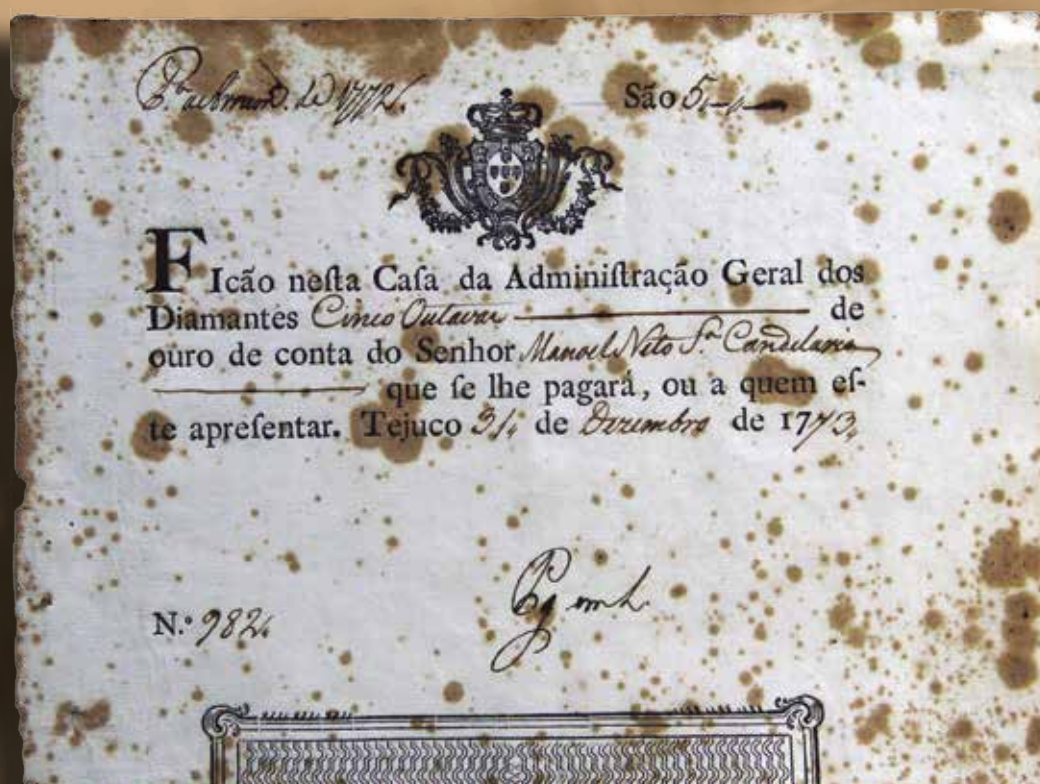 de 1772. São 5
FIcão neſta Caſa da Adminiſtração Geral dos
Diamantes Cinco Outavas de
ouro de conta do Senhor Manoel Neto Sª Candelaria
que ſe lhe pagará, ou a quem eſ-
te apreſentar. Tejuco 31, de Dezembro de 1773,
N.º 982